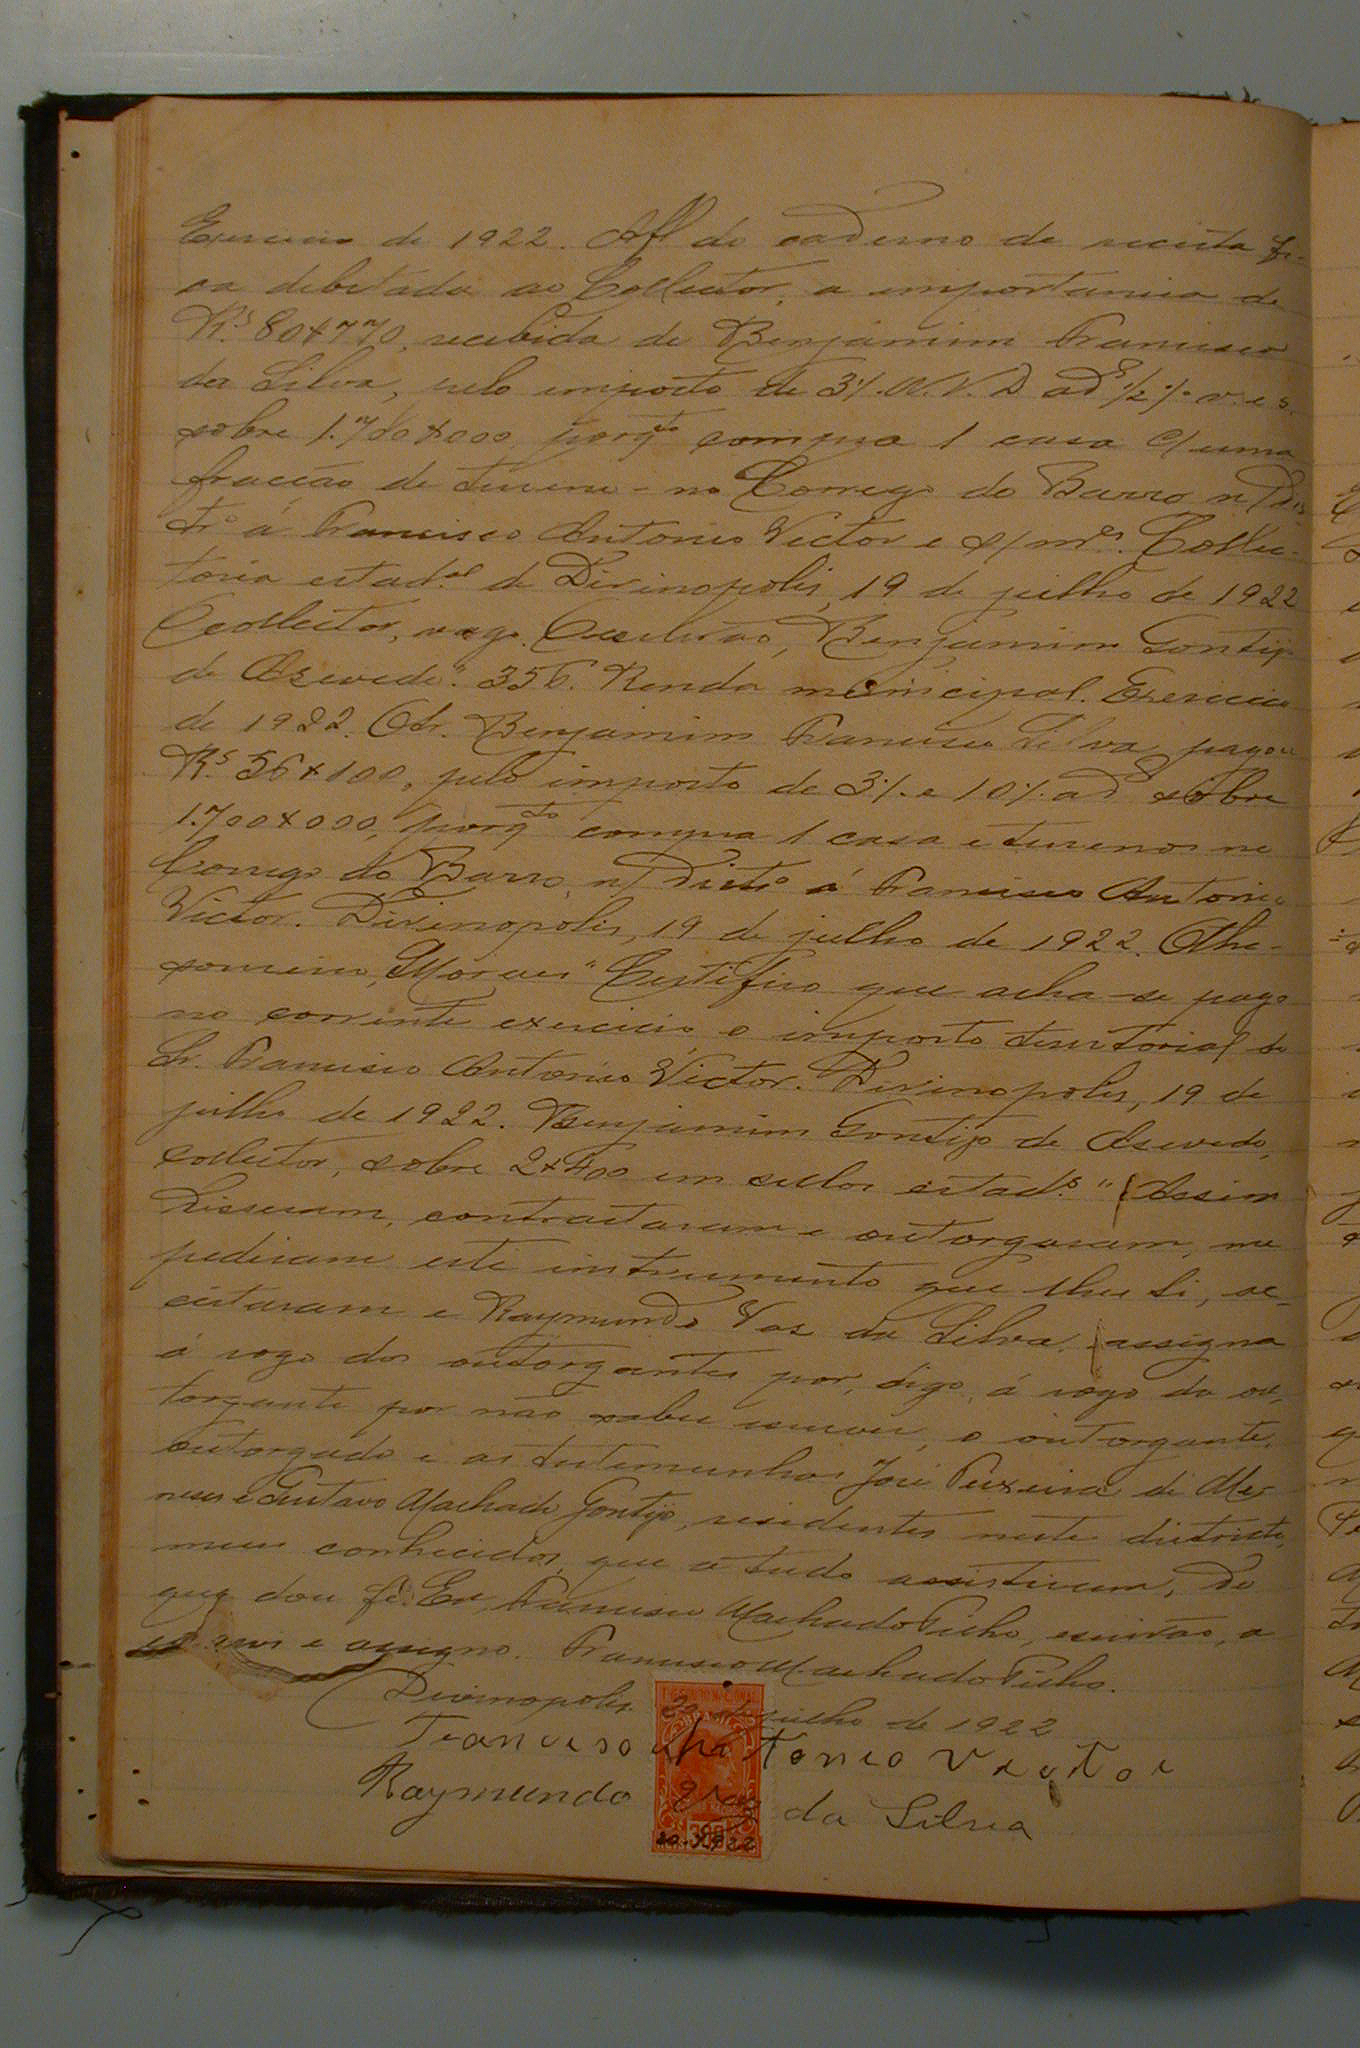 Exercicio de 1922. A fl do caderno de receita fi-
ca debitada ao Collector, a importancia de
R.s 80$770, recebida de Benjamim Francisco
da Silva, pelo imposto de 3%. N. V. D. ad 1/2 % v. e s.
sobre 1.700$000 porq.to compra 1 casa c/ uma
fracção de terreno - no Corrego do Barro n/ Dis-
tr.o á Francisco Antonio Victor e s/ m.er. Collec-
toria estad.al de Divinopolis, 19 de julho de 1922
O collector, Benjamim Gontijo
de Azevedo". 356. Renda municipal. Exercicio
de 1922. O Sr. Benjamim Francisco Silva pagou
R.s 56$100, pelo imposto de 3%. e 10%. ad sobre
1.700$000, porq.to compra 1 casa e terrenos no
Corrego do Barro, n/ Distr.o á Francisco Antonio
Victor. Divinopolis, 19 de julho de 1922. O the-
soureiro, Moraes" Certifico que acha-se pago
no corrente exercicio o imposto territorial do
Sr. Francisco Antonio Victor. Divinopolis, 19 de
julho de 1922. Benjamim Gontijo de Azevedo,
collector, sobre 2$400 em sellos estad.s" (Assim
disseram, contractaram e outorgaram, me
pediram este instrumento que lhes li, ac-
ceitaram e Raymundo Vaz da Silva, assigna
á rogo dos outorgantes por, digo, á rogo da ou-
torgante por não saber escrever, o outorgante,
outorgado e as testemunhas José Teixeira de Me-
neses e Gustavo Machado Gontijo, residentes neste districto,
meus conhecidos, que a tudo assistiram, do
que dou fé. Eu, Francisco Machado Filho, escrivão, o
escrevi e assigno. Francisco Machado Filho.
Divinopolis. 20 de julho de 1922
THESOURO NACIONAL
BRASIL
Francisco Antonio Victor
Raymundo Vaz da Silva
300
20-7-922